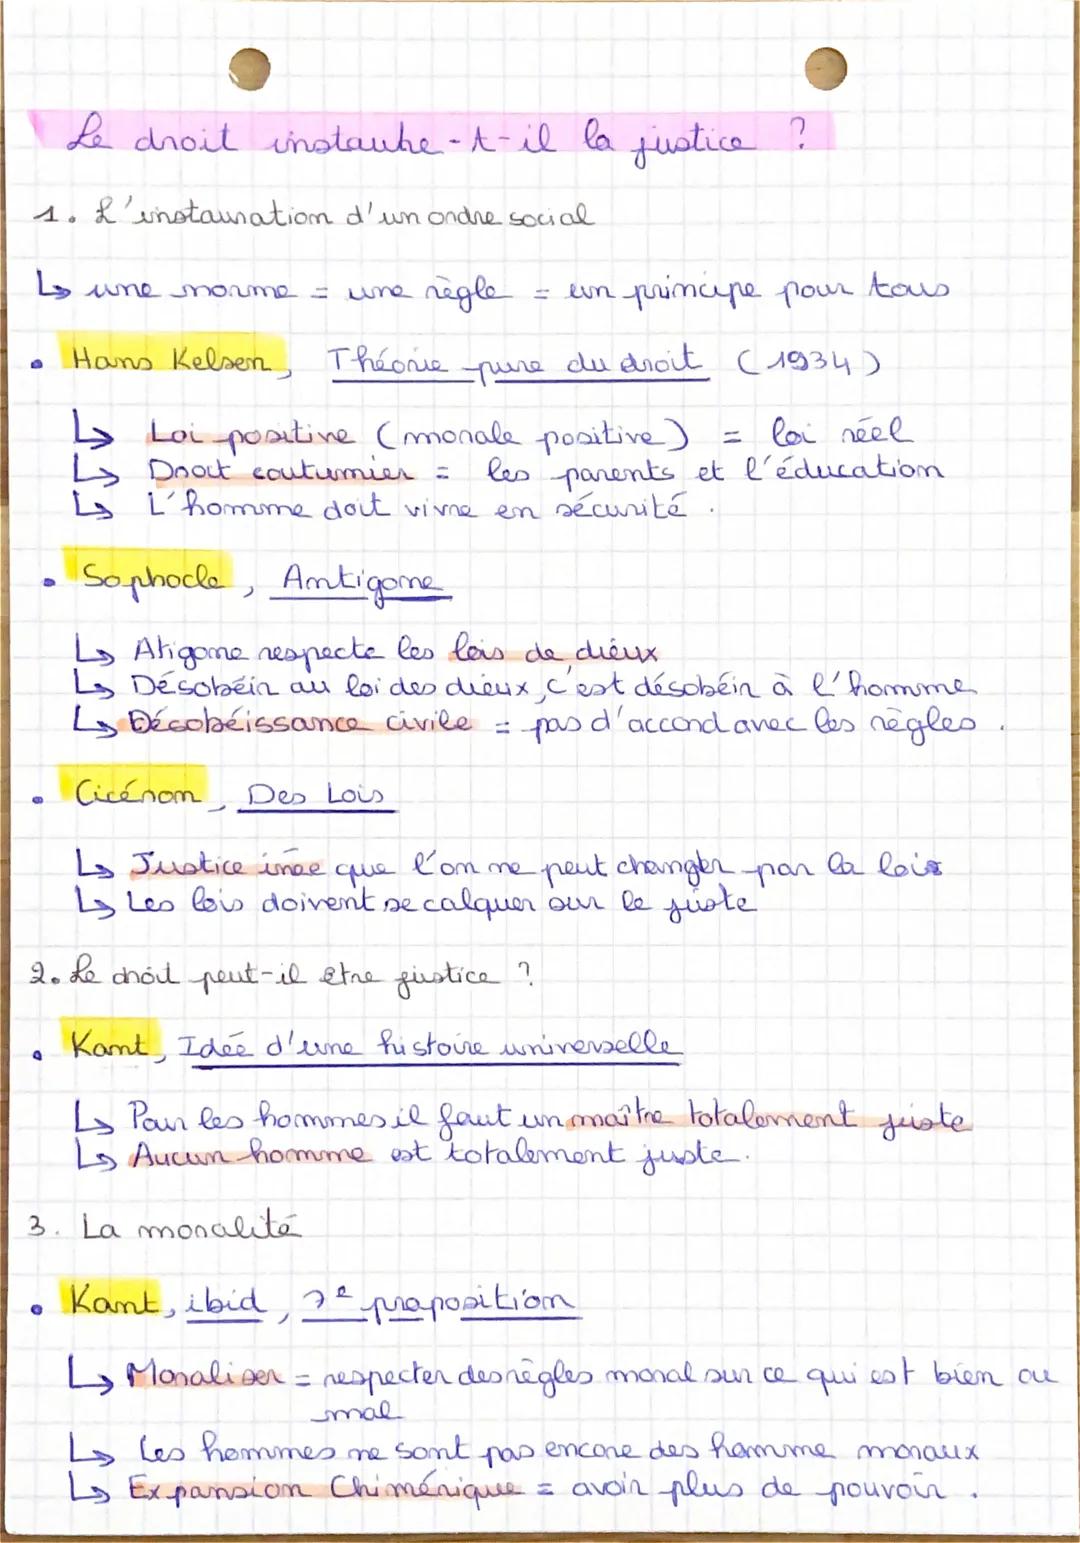 Le droit instaure-t-il la justice ?
1. L'instauration d'un ordre social
↳ une norme = une règle = un principe pour tous
• Hans Kelsen, Théorie pure du droit (1934)
↳ Loi positive (morale positive) = loi réel
↳ Droit coutumier = les parents et l'éducation
↳ L'homme doit vivre en sécurité.
• Sophocle, Antigone
↳ Atigone respecte les lois de dieux
↳ Désobéir au loi des dieux, c'est désobéir à l'homme
↳ Désobéissance civile = pas d'accord avec les règles.
• Cicéron, Des Lois
↳ Justice inée que l'on ne peut changer par la lois
↳ Les lois doivent se calquer sur le juste
2. Le droit peut-il être justice ?
• Kant, Idée d'une histoire universelle
↳ Pour les hommes il faut un maître totalement juste
↳ Aucun homme est totalement juste.
3. La moralité
• Kant, ibid, 7e proposition
↳ Moraliser = respecter des règles moral sur ce qui est bien ou
mal
↳ Les hommes ne sont pas encore des homme moraux
↳ Expansion Chimérique = avoir plus de pouvoir.